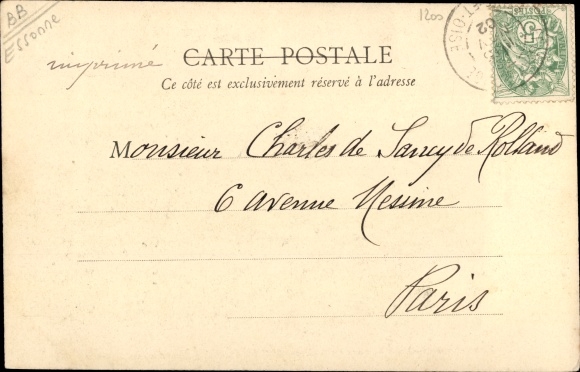 BB
Essonne
1200
imprimé
CARTE POSTALE
Ce côté est exclusivement réservé à l'adresse
ET-OISE
Monsieur Charles de Sancy de Rolland
6 Avenue Messine
Paris